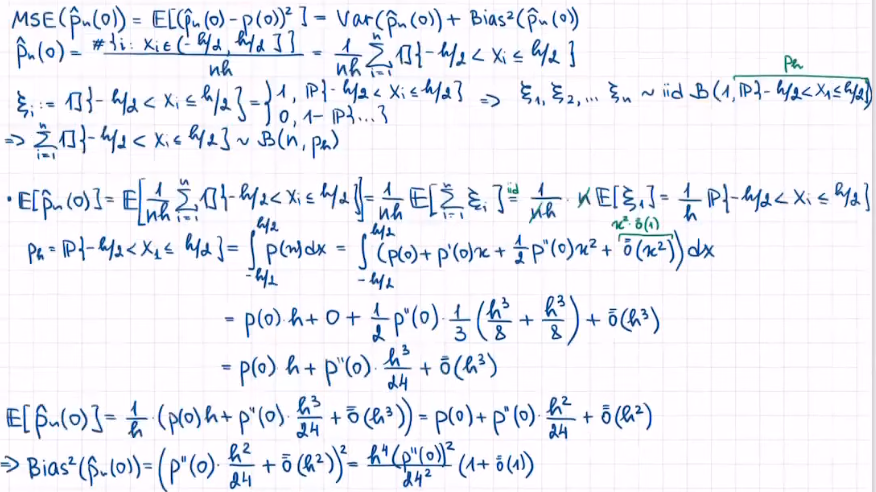 MSE(p̂ₙ(0)) = 𝔼[(p̂ₙ(0) - p(0))²] = Var(p̂ₙ(0)) + Bias²(p̂ₙ(0))
p̂ₙ(0) = #{i: Xᵢ ∈ (-h/2, h/2]} / nh = 1/nh ∑ᵢ₌₁ⁿ 𝟙{-h/2 < Xᵢ ≤ h/2}
pₕ
ξᵢ := 𝟙{-h/2 < Xᵢ ≤ h/2} = {1, ℙ{-h/2 < Xᵢ ≤ h/2} ; 0, 1-ℙ{...} => ξ₁, ξ₂, ... ξₙ ~ iid B(1, ℙ{-h/2 < X₁ ≤ h/2})
=> ∑ᵢ₌₁ⁿ 𝟙{-h/2 < Xᵢ ≤ h/2} ~ B(n, pₕ)
• 𝔼[p̂ₙ(0)] = 𝔼[1/nh ∑ᵢ₌₁ⁿ 𝟙{-h/2 < Xᵢ ≤ h/2}] = 1/nh 𝔼[∑ᵢ₌₁ⁿ ξᵢ] iid= 1/nh · n 𝔼[ξ₁] = 1/h ℙ{-h/2 < Xᵢ ≤ h/2}
x²·ō(1)
pₕ = ℙ{-h/2 < X₁ ≤ h/2} = ∫₋ₕ/₂^h/2 p(x)dx = ∫₋ₕ/₂^h/2 (p(0) + p'(0)x + 1/2 p''(0)x² + ō(x²)) dx
= p(0)·h + 0 + 1/2 p''(0) · 1/3 (h³/8 + h³/8) + ō(h³)
= p(0)·h + p''(0)·h³/24 + ō(h³)
𝔼[p̂ₙ(0)] = 1/h · (p(0)h + p''(0)·h³/24 + ō(h³)) = p(0) + p''(0)·h²/24 + ō(h²)
=> Bias²(p̂ₙ(0)) = (p''(0)·h²/24 + ō(h²))² = h⁴(p''(0))²/24² (1 + ō(1))